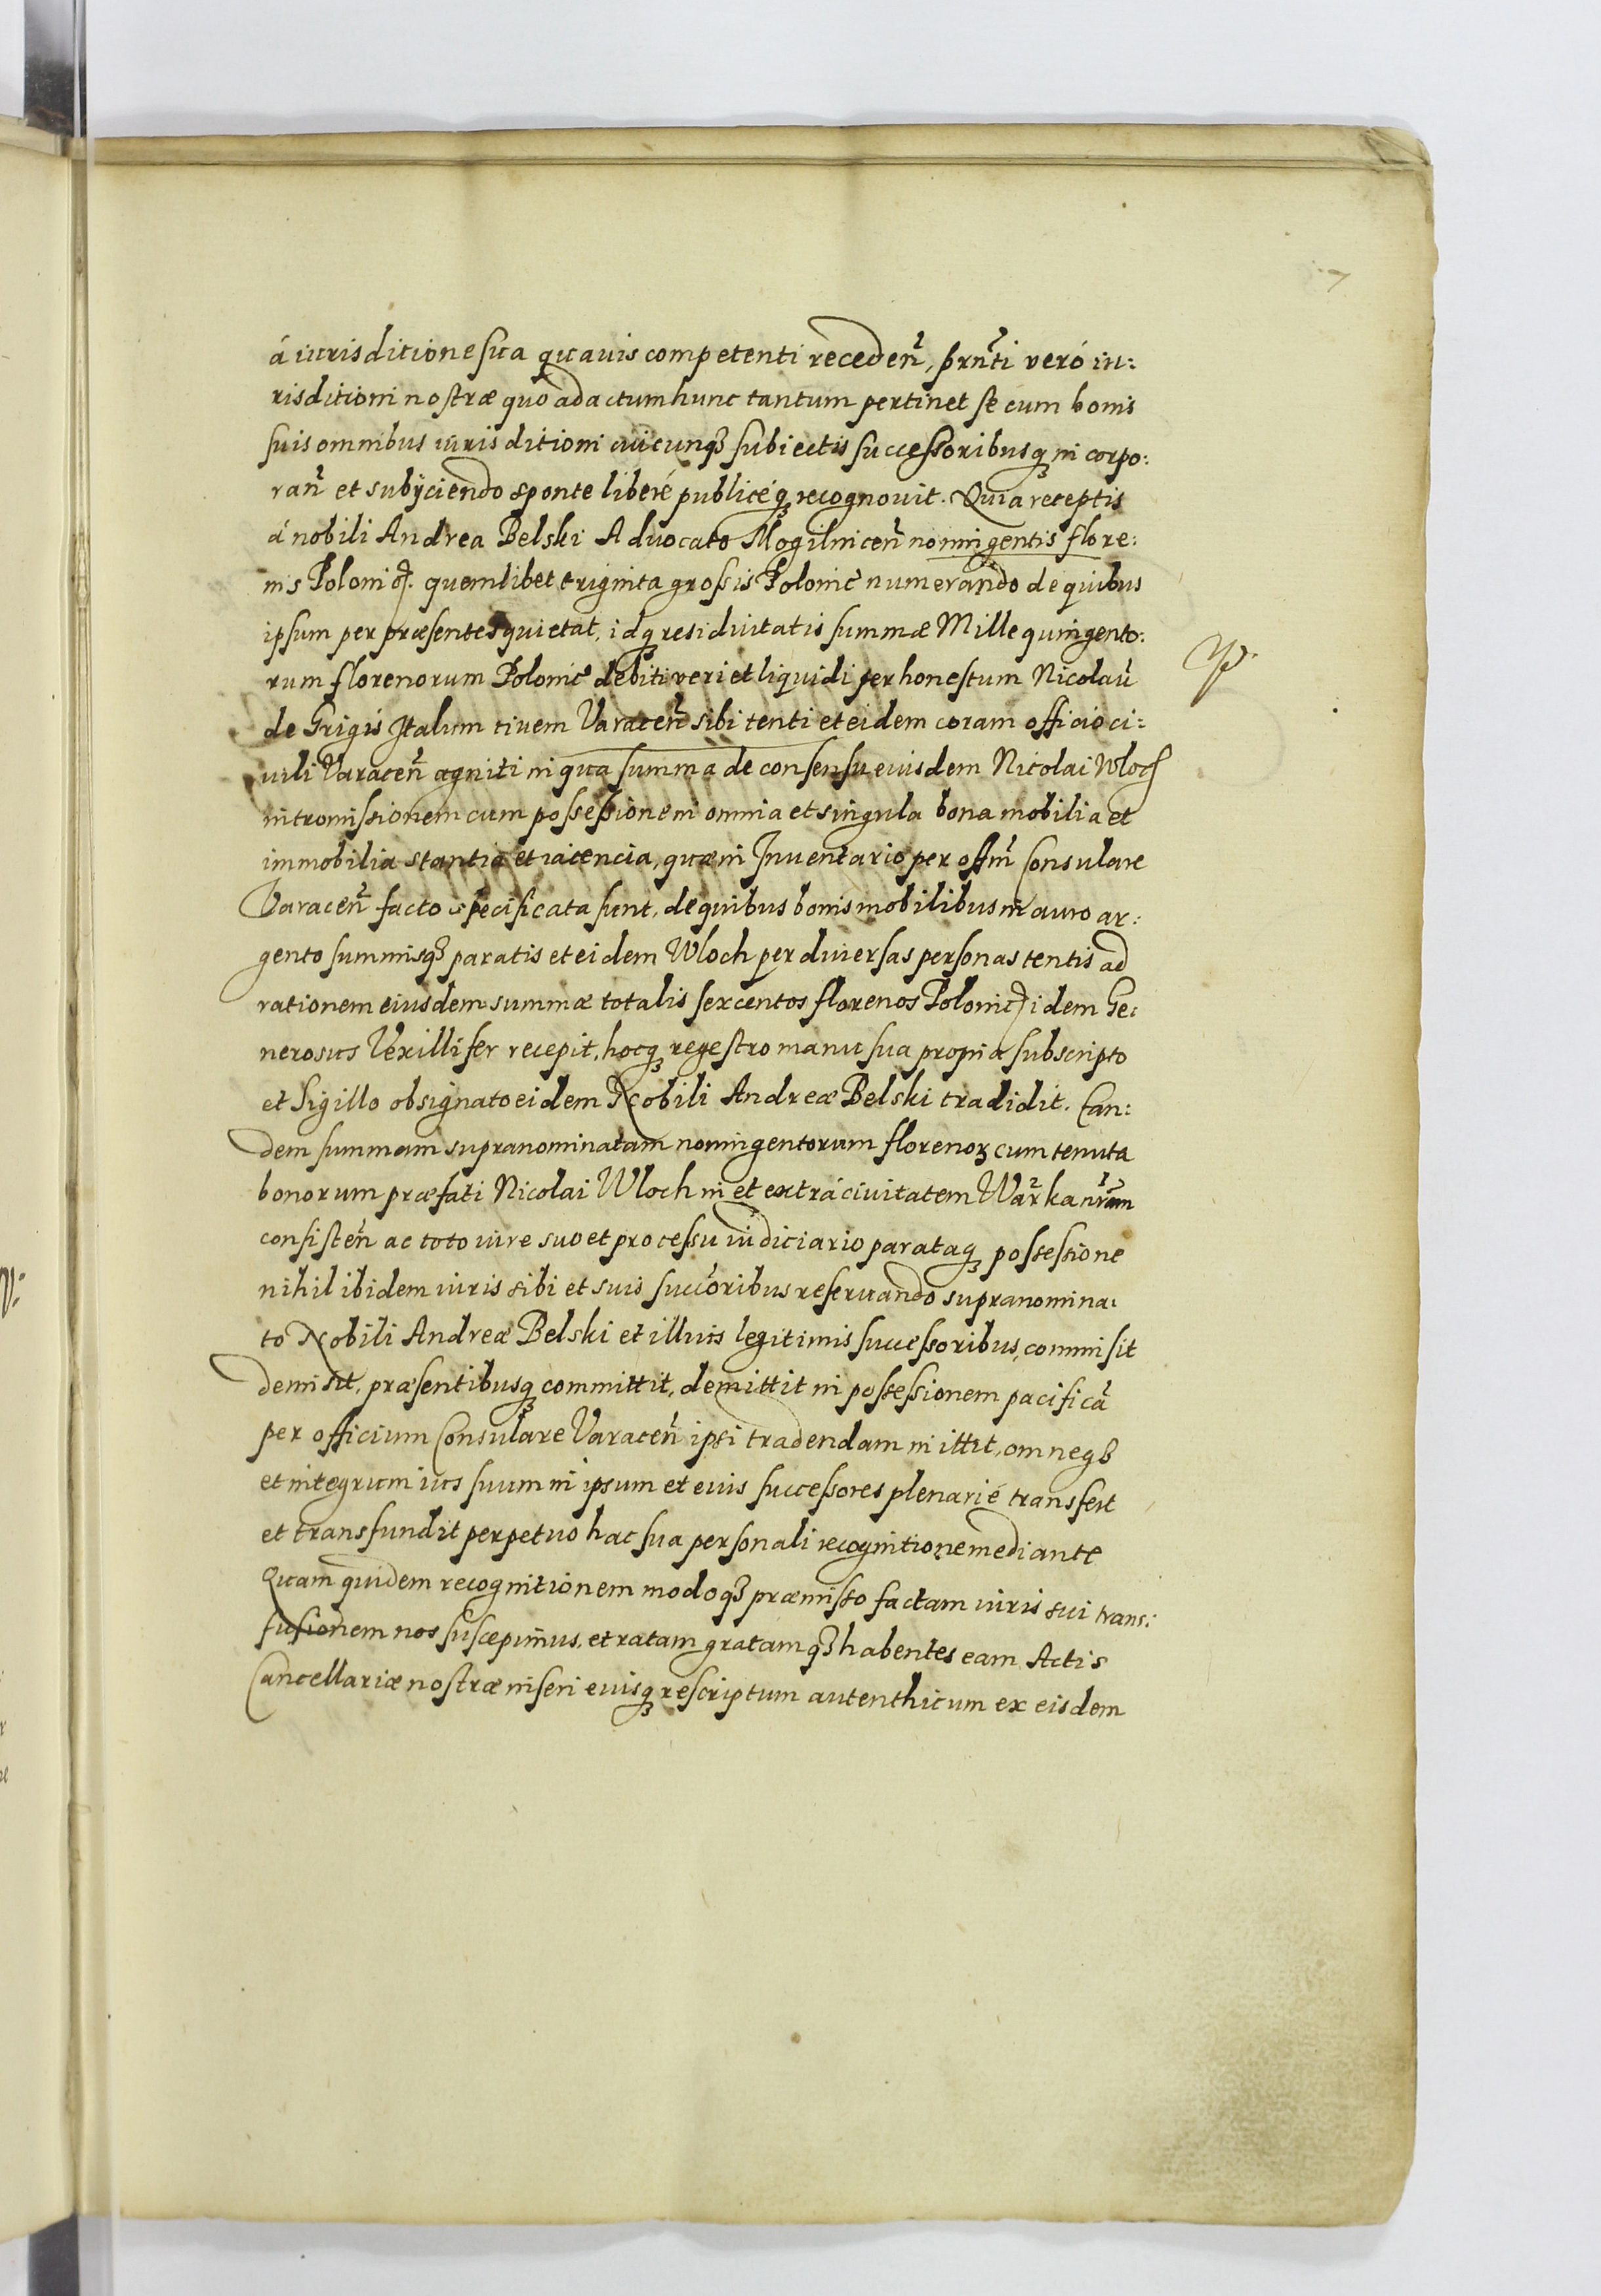 á iurisditione sua quavis competenti receden̄, prn̄ti veró iu:
risditioni nostræ quo ad actum hunc tantum pertinet se cum bonis
suis omnibus iurisditioni cuicunqȝ subiectis successoribusqȝ in corpo:
ran̄ et subijciendo sponte liberé publicéqȝ recognovit. Quia receptis
á nobili Andrea Belski Advocato Mogilnicen̄ noningentis flore:
nis Polonic̄. quemlibet triginta grossis Polonic̄ numerando de quibus
ipsum per præsentes quietat, idqȝ residuitatis summæ Mille quingento:
rum florenorum Polonic̄ debiti veri et liquidi per honestum Nicolaū
de Grigis Italum civem Varacen̄ sibi tenti et eidem coram officio ci:
vili Varacen̄ agniti in qua summa de consensu eiusdem Nicolai Wloch
intromissionem cum possessione in omnia et singula bona mobilia et
immobilia stantia et iacencia, quæ in Inventario per offm̄ Consulare
Varacen̄ facto specificata sunt, de quibus bonis mobilibus in auro ar:
gento summisqȝ paratis et eidem Wloch per diversas personas tentis ad
rationem eiusdem summæ totalis sexcentos florenos Polonic̄ idem Ge:
nerosus Vexillifer recepit, hocqȝ regestro manu sua propria subscripto
et Sigillo obsignato eidem Nobili Andreæ Belski tradidit. Ean:
dem summam supranominatam noningentorum florenoꝝ cum tenuta
bonorum præfati Nicolai Wloch in et extrá civitatem Warka nr̄am
consisten̄ ac toto iure suo et processu iudiciario parataqȝ possessione
nihil ibidem iuris sibi et suis succōribus reservando supranomina:
to Nobili Andreæ Belski et illius legitimis successoribus, commisit
demisit, præsentibusqȝ committit, demittit in possessionem pacificā
per officium Consulare Varacen̄ ipsi tradendam mittit, omneqȝ
et integrum ius suum in ipsum et eius successores plenarié transfert
et transfundit perpetuo hac sua personali recognitione mediante
Quam quidem recognitionem modoqȝ præmisso factam iuris sui trans:
fusionem nos suscepimus, et ratam gratamqȝ habentes eam Actis
Cancellariæ nostræ inseri eiusqȝ rescriptum autenthicum ex eisdem